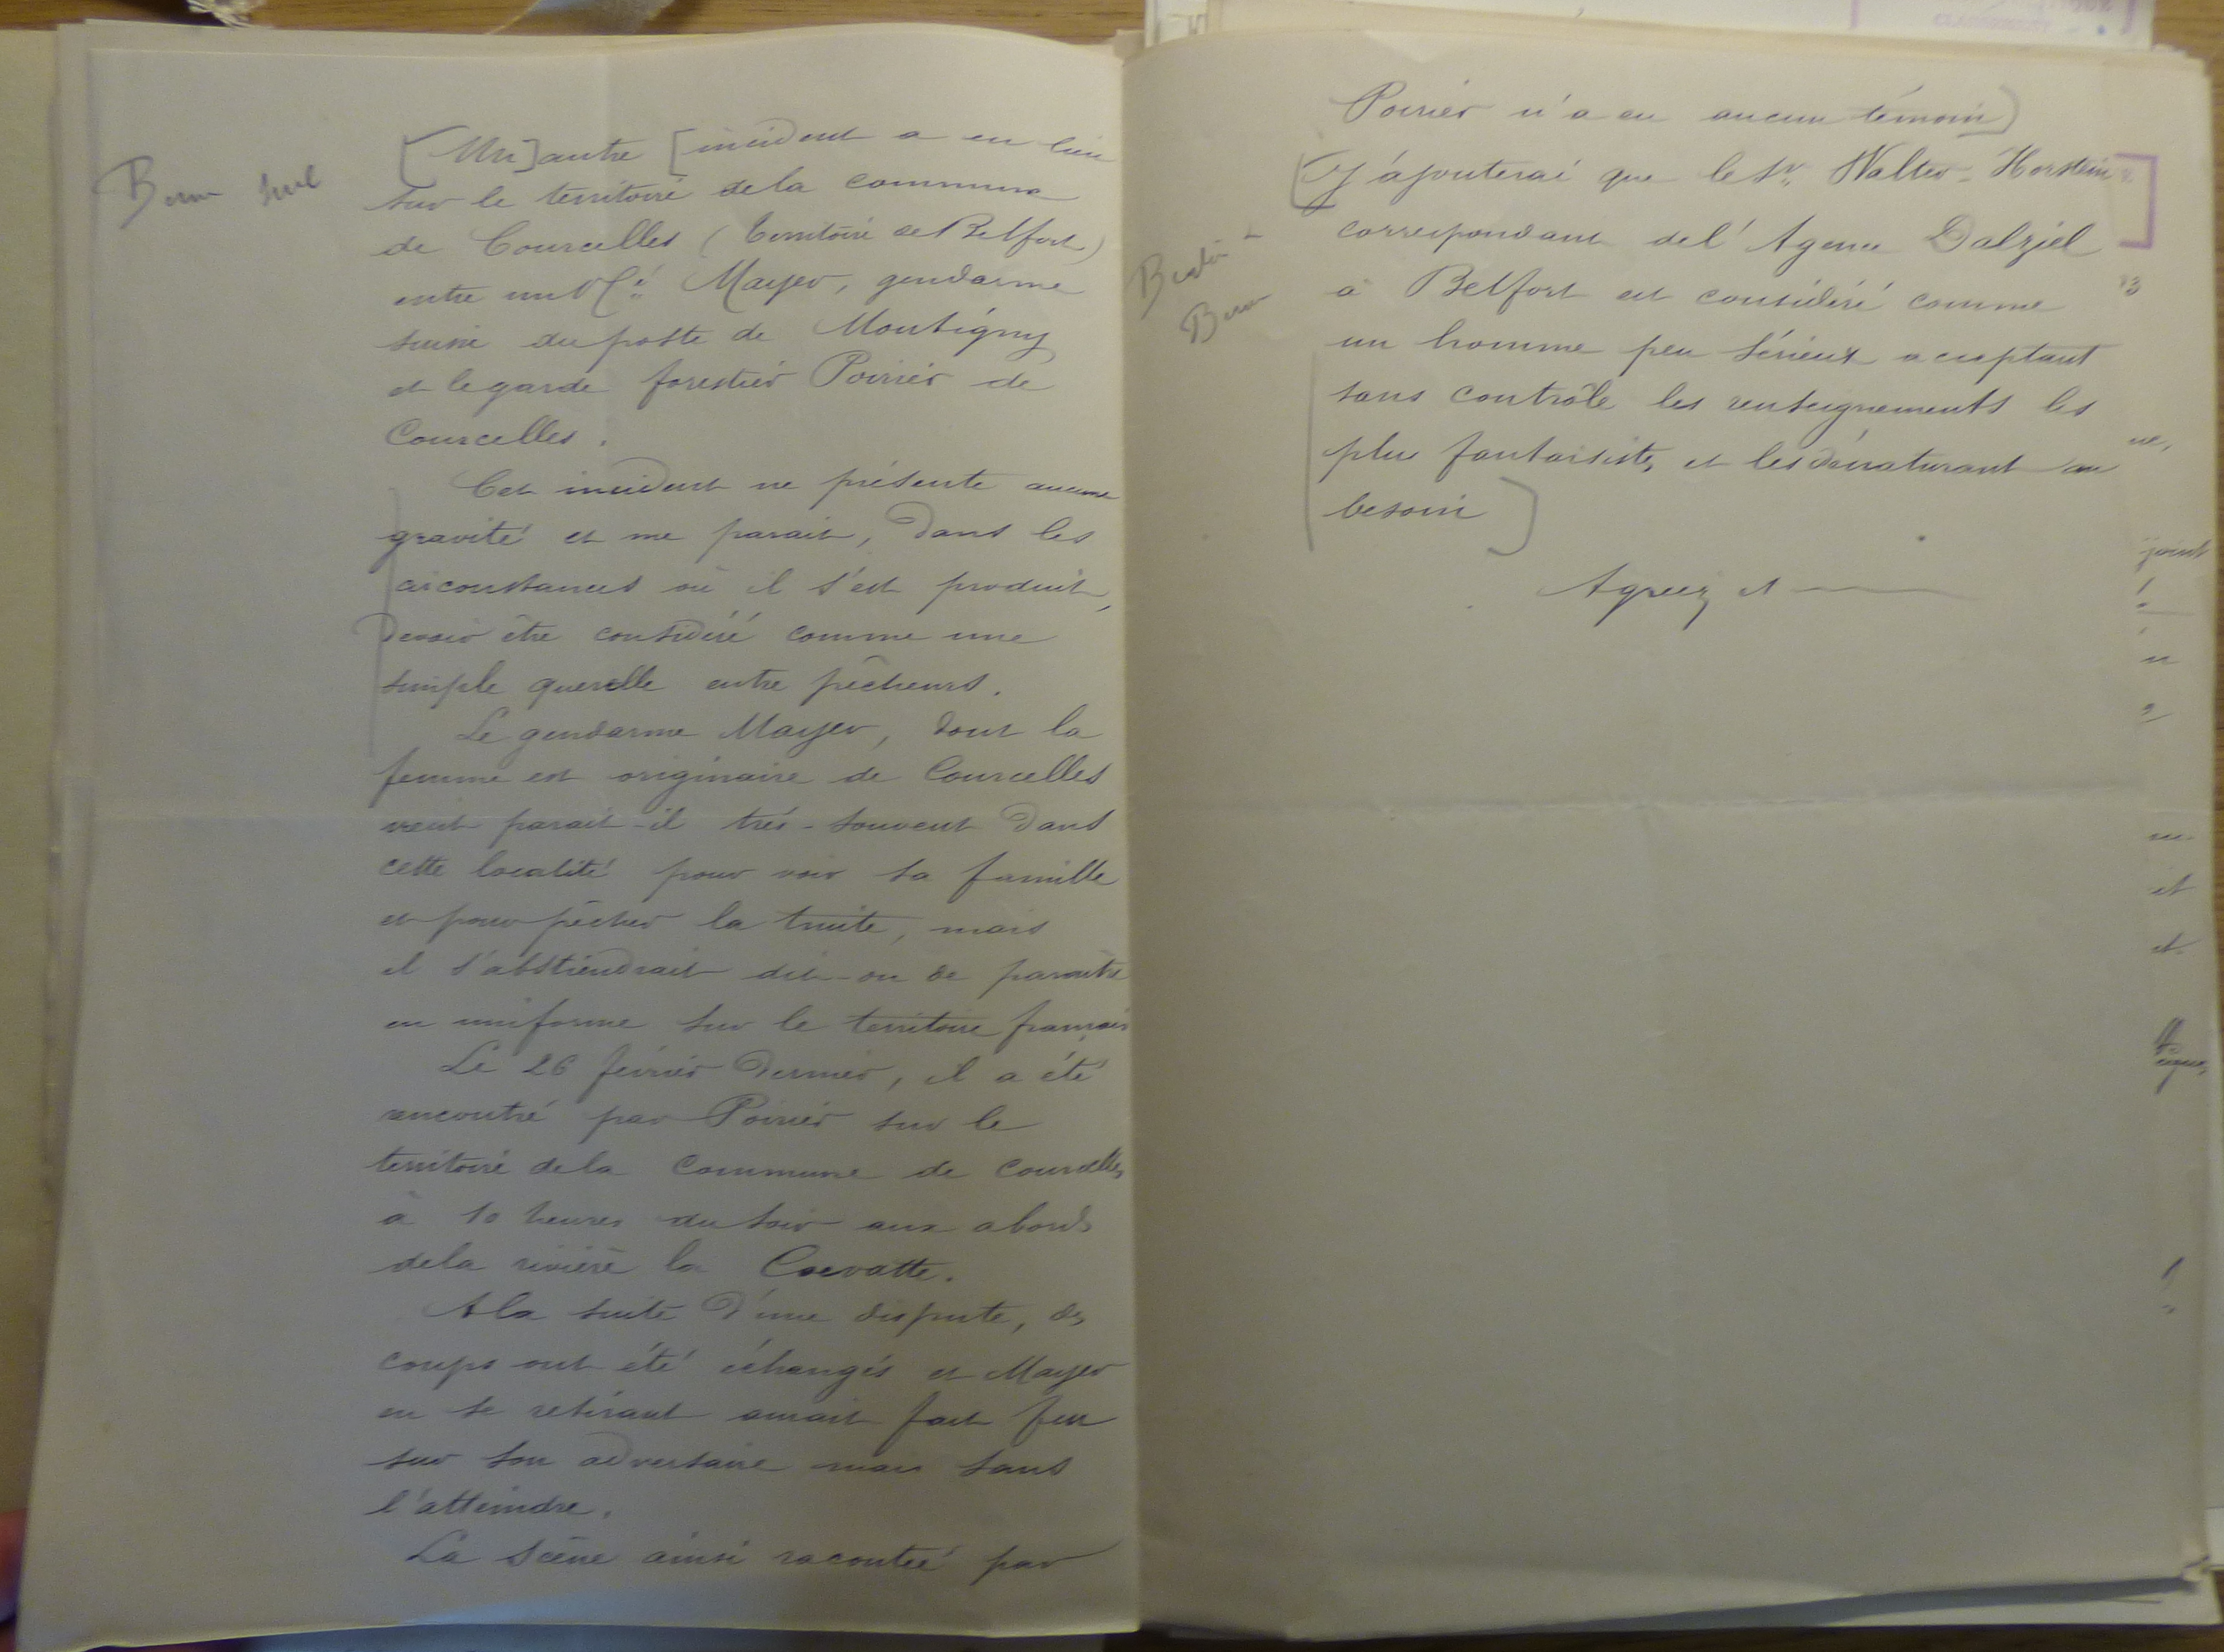 Berne seul
[Un] autre [incident a eu lieu
sur le territoire de la commune
de Courcelles (territoire de Belfort)
entre un Mayer, gendarme
suisse du poste de Montigny
et le garde forestier Poirier de
Courcelles.
Cet incident ne présente aucune
gravité et me parait, dans les
circonstances où il s'est produit,
devoir être considéré comme une
simple querelle entre pêcheurs.
Le gendarme Mayer, dont la
femme est originaire de Courcelles
vient parait-il très-souvent dans
cette localité pour voir sa famille
et pour pêcher la truite, mais
il s'abstiendrait dit-on de paraître
en uniforme sur le territoire français
Le 26 février dernier, il a été
rencontré par Poirier sur le
territoire de la commune de Courcelles
à 10 heures du soir aux abords
de la rivière la Coevatte.
A la suite d'une dispute, des
coups ont été échangés et Mayer
en se retirant aurait fait feu
sur son adversaire mais sans
l'atteindre.
La scène ainsi racontée par
Poirier n'a eu aucun témoin]
[J'ajouterai que le Sr. Walter-Horstein
correspondant de l'Agence Dalziel
à Belfort est considéré comme
un homme peu sérieux acceptant
sans contrôle les renseignements les
plus fantaisistes, et les dénaturant au
besoin]
Agréez et
Berlin
Berne